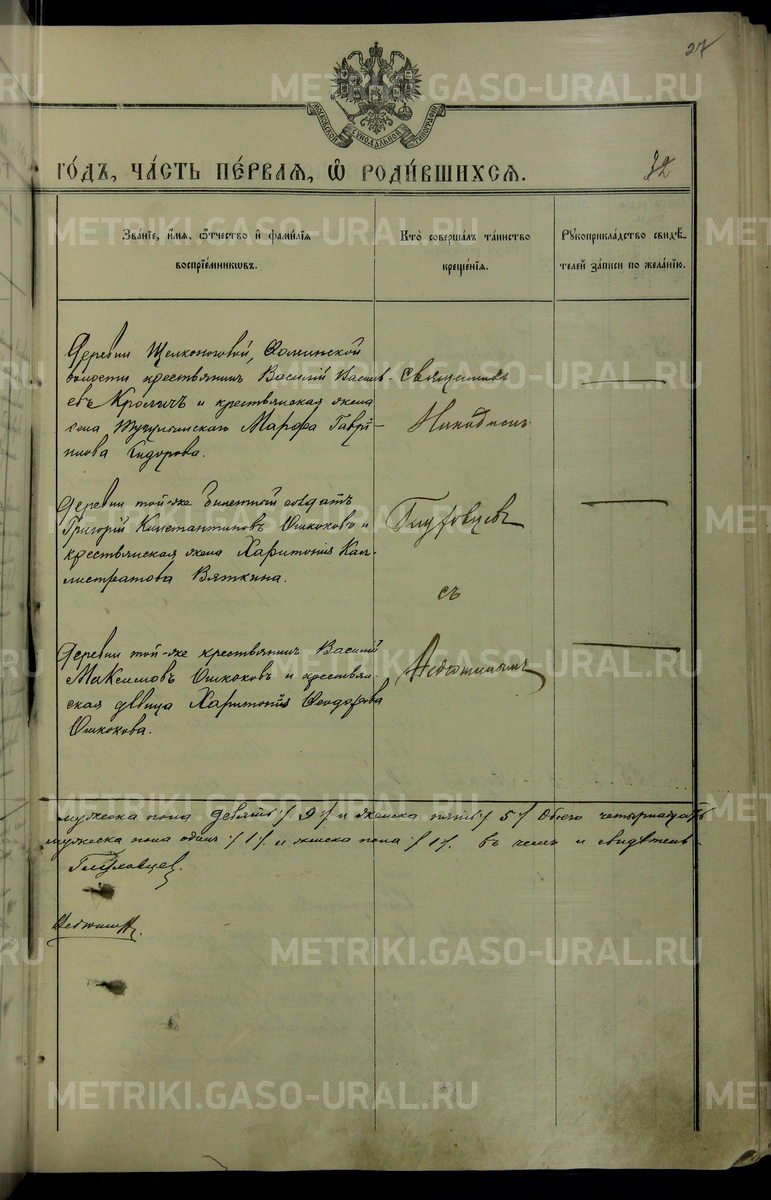 27
METRIKI.GASO-URAL.RU
МОСКОВСКОЙ СѴНОДАЛЬНОЙ ТИПОГРАФІИ
ГО́ДЪ, ЧА́СТЬ ПЕ́РВАЯ, Ѡ РОДИ́ВШИХСЯ.
32
Зва́нїе, и́мя, ѻ҆́тчество и҆ фами́лїя
воспрїе́мниковъ.
Кто̀ соверша́лъ та́инство
креще́нїя.
Рꙋкоприкла́дство свидѣ́-
телей за́писи по жела́нїю.
Деревни
волости крестьянинъ Василій Василь-
евъ и крестьянская жена
села Марфа Гаврі-
илова Сидорова.
Священникъ
Никодимъ
Деревни той-же билетный солдатъ
Григорій Константиновъ Ошкоковъ и
крестьянская жена Харитонія Кал-
листратова Вяткина.
Глуховцевъ
съ
Деревни той-же крестьянинъ Василій
Максимовъ Ошкоковъ и крестьян-
ская дѣвица Харитонія Ѳеодорова
Ошкокова.
мужеска пола девять /9/ и женска пять /5/ Обоего четырнадцать
мужеска пола одинъ /1/ и женска пола /1/. въ чемъ и свидѣтель-
Глуховцев.
METRIKI.GASO-URAL.RU